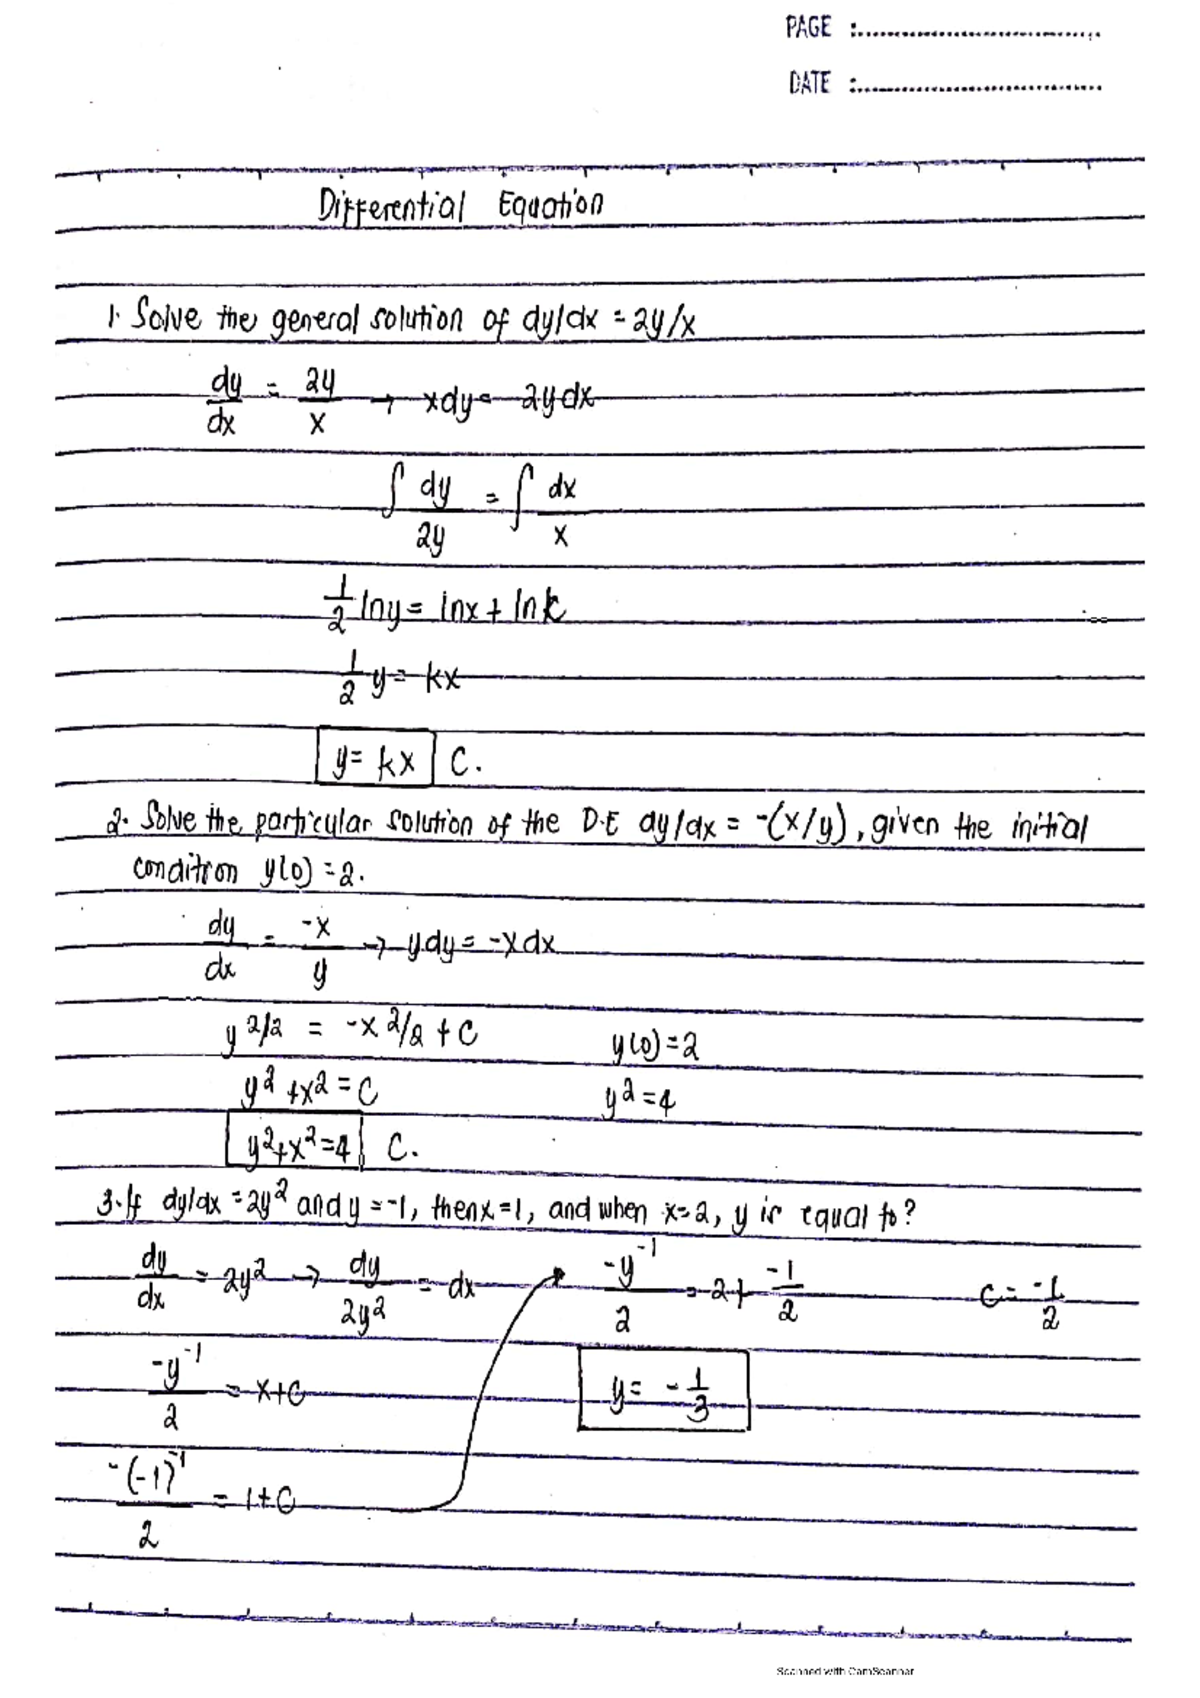 PAGE :....................................
DATE :....................................
Differential Equation
1. Solve the general solution of dy/dx = 2y/x
dy/dx = 2y/x → xdy = 2ydx
∫ dy/2y = ∫ dx/x
1/2 lny = lnx + lnk
1/2 y = kx
y = kx C.
2. Solve the particular solution of the D.E dy/dx = -(x/y), given the initial
condition y(0) = 2.
dy/dx = -x/y → ydy = -xdx
y^2/2 = -x^2/2 + C y(0) = 2
y^2 + x^2 = C y^2 = 4
y^2 + x^2 = 4 C.
3. If dy/dx = 2y^2 and y = -1, then x = 1, and when x = 2, y is equal to?
dy/dx = 2y^2 → dy/2y^2 = dx -y^-1/2 = 2 + -1/2 C = -1/2
-y^-1/2 = x + C y = -1/3
-(-1)^-1/2 = 1 + C
Scanned with CamScanner